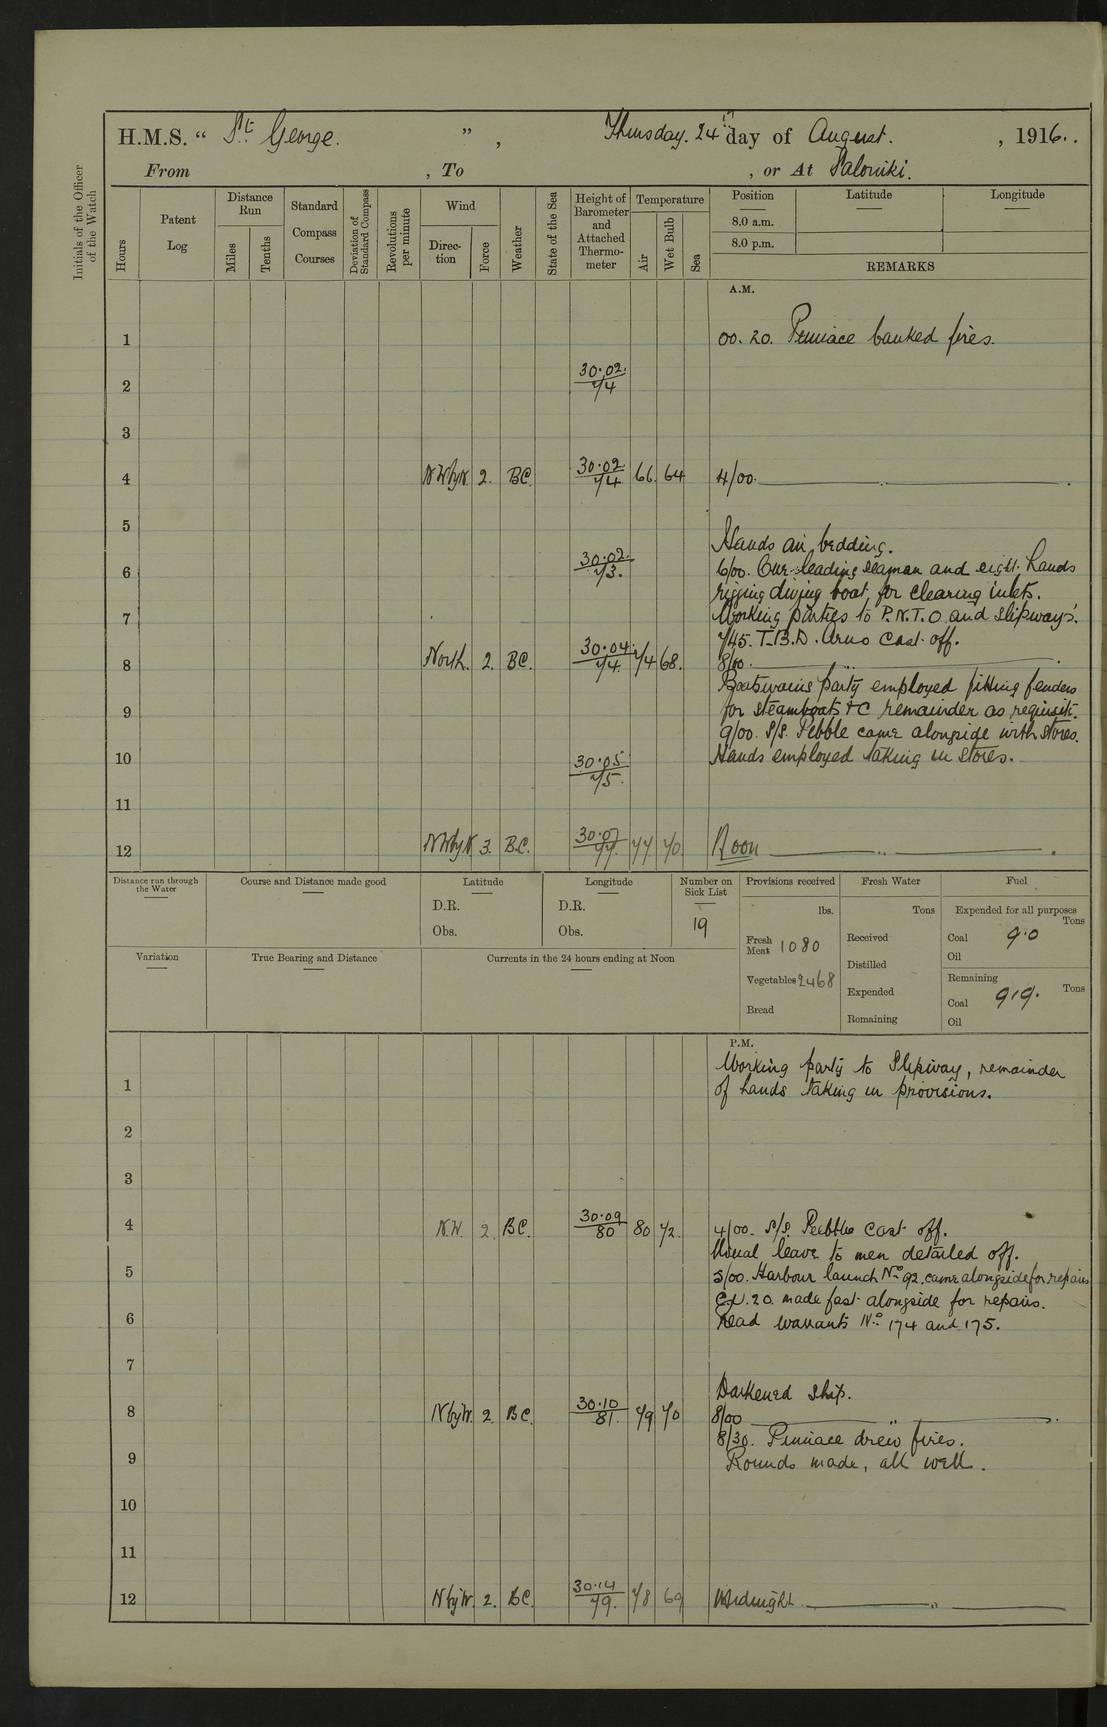 H.M.S. “ St. George. ” , Thursday. 24th day of August. , 1916.
From , To , or At Saloniki.
Initials of the Officer of the Watch
Hours
Patent Log
Distance Run
Miles
Tenths
Standard Compass Courses
Deviation of Standard Compass
Revolutions per minute
Wind
Direction
Force
Weather
State of the Sea
Height of Barometer and Attached Thermometer
Temperature
Air
Wet Bulb
Sea
Position
8.0 a.m.
8.0 p.m.
Latitude
Longitude
REMARKS
A.M.
1 00.20. Pinnace banked fires.
2 30.02. 74
3
4 NWbyN. 2. BC. 30.02 74 66. 64 4/00.
5
Hands air bedding.
6 30.02. 73. 6/00. One leading seaman and eight hands
rigging diving boat for clearing inlets.
7 Working parties to P.N.T.O and slipways.
7/45. T.B.D. Arno cast off.
8 North. 2. BC. 30.04. 74. 74 68. 8/00.
Boatswains party employed fitting fenders
9 for steamboats &c remainder as requisite.
9/00. S/S. Pebble came alongside with stores.
10 30.05 75. Hands employed taking in stores.
11
12 NWbyN 3. B.C. 30.07 77. 77 70 Noon
Distance run through the Water
Course and Distance made good
Latitude
D.R.
Obs.
Longitude
D.R.
Obs.
Number on Sick List
19
Provisions received
lbs.
Fresh Meat 1080
Vegetables 2468
Bread
Fresh Water
Tons
Received
Distilled
Expended
Remaining
Fuel
Expended for all purposes
Tons
Coal 9.0
Oil
Remaining
Tons
Coal 919.
Oil
Variation
True Bearing and Distance
Currents in the 24 hours ending at Noon
P.M.
Working party to Slipway, remainder
1 of hands taking in provisions.
2
3
4 N.W. 2 BC. 30.09 80 80 72. 4/00. S/S. Pebble cast off.
Usual leave to men detailed off.
5 5/00. Harbour launch No. 92. came alongside for repairs
20 made fast alongside for repairs.
6 Read warrants No. 174 and 175.
7
Darkened ship.
8 NbyW. 2. BC. 30.10 81. 79 70 8/00
8/30. Pinnace drew fires.
9 Rounds made, all well.
10
11
12 NbyW. 2. BC. 30.14 79. 78 69 Midnight